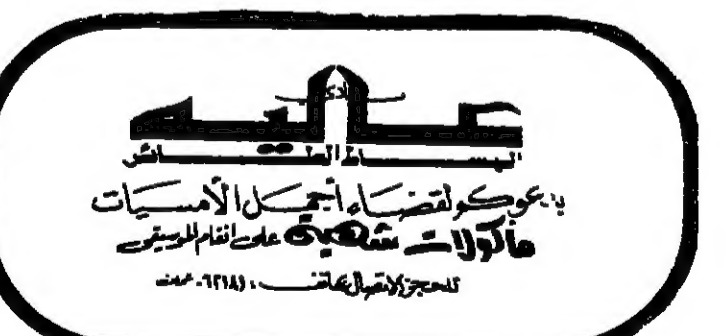 نادي
عاليه
البساط الطائر
يدعوكم لقضاء أجمل الأمسيات
مأكولات شهية على انغام الموسيقى
للحجز الاتصال بهاتف : ٦٢١٨١ - عمان